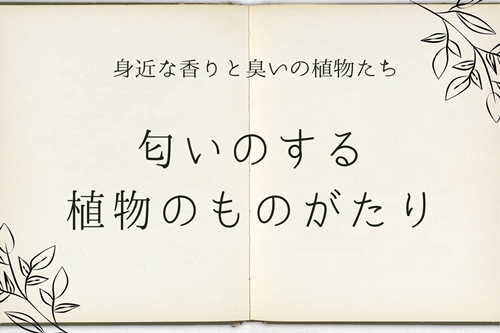 身近な香りと臭いの植物たち
匂いのする
植物のものがたり